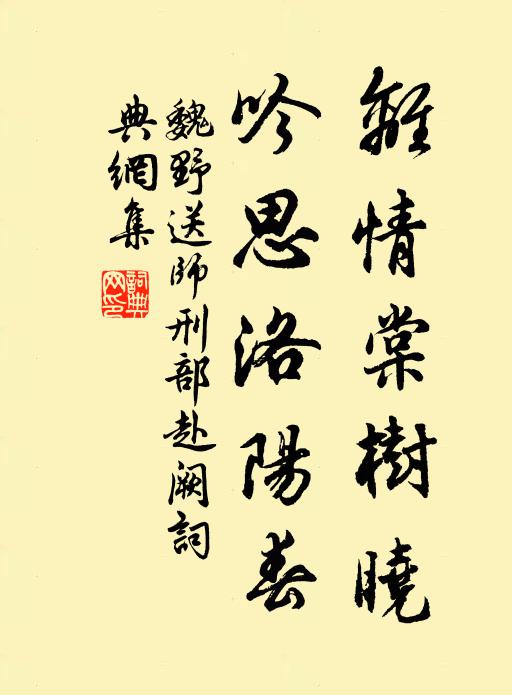 離情棠樹曉
吟思洛陽春
魏野送師刑部赴闕詞
典網集
詞典
网印